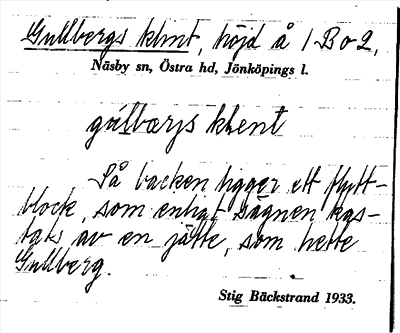 Gullbergs klint, höjd å 1 B o 2,
Näsby sn, Östra hd, Jönköpings l.
gúlbærjs klent
På backen ligger ett flytt-
block, som enligt sägnen kas-
tats av en jätte, som hette
Gullberg.
Stig Bäckstrand 1933.